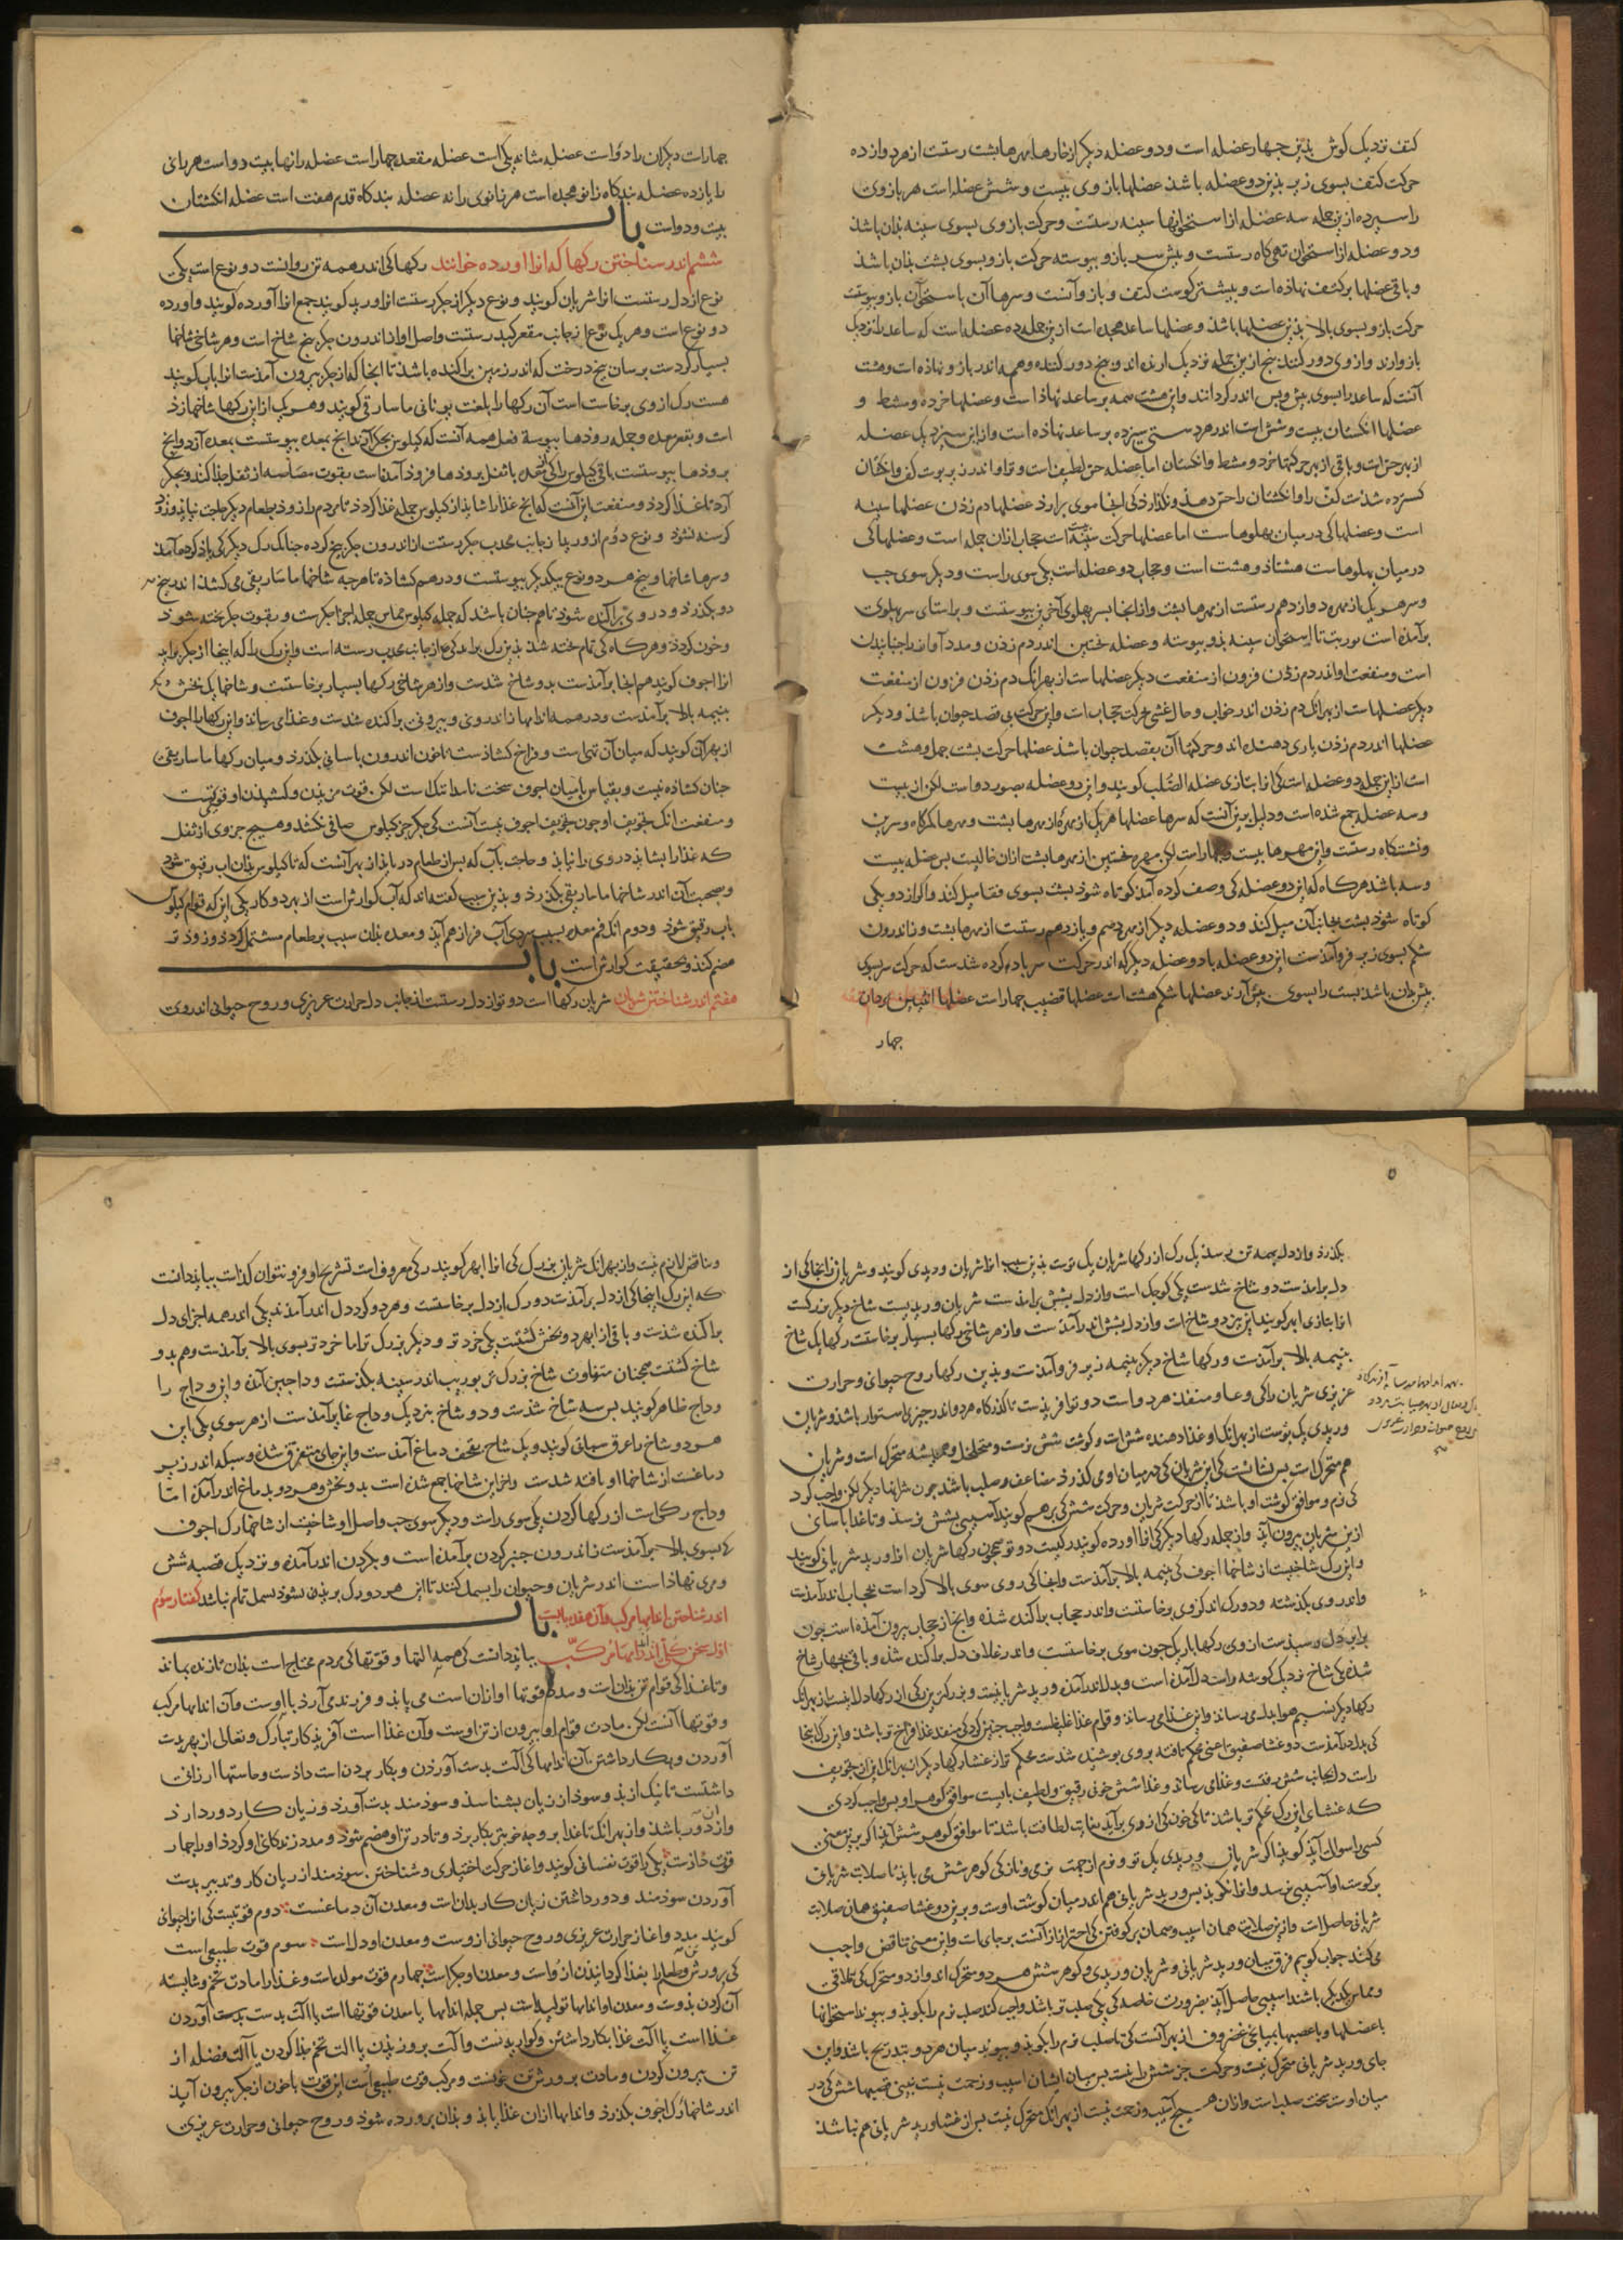 کتف نزدیک کوش بذین جهار عضله است و دو عضله دیکر از خارها مهرها بشت رستست از هر دوازده
حرکت کتف بسوی زبر بذین دو عضله باشذ عضلها بازوی بیست و شش عضله است هر بازوی
را سیزده ازین جمله سه عضله از استخوانها سینه رستست و حرکت بازوی بسوی سینه بذان باشذ
و دو عضله از استخوان تهی کاه رستست و بیش سر بازو بیوسته حرکت بازو بسوی بشت بذان باشذ
و باقی عضلها بر کتف نهاذه است و بیشتر کوشت کتف و بازو آنست و سرها آن باستخوان بازو بیوسته
حرکت بازو بسوی بالا بذین عضلها باشذ و عضلها ساعد هجده است ازین جمله ده عضله است که ساعد را نزدیک
بازو آرند و از وی دور کنند بنج ازین جمله نزدیک آرنده اند و بنج دور کننده و همه اندر بازو نهاذه است و هشت
آنست که ساعد را بسوی بیش و بس اندر کردانند و این هشت همه بر ساعد نهاذه است و عضلها خرده و مشط و
عضلها انکشتان بیست و شش است اندر هر دستی سیزده بر ساعد نهاذه است و ازین سیزده یک عضله
از بهر حس است و باقی از بهر حرکتها خرد و مشط و انکشتان اما عضله حس لطیف است و تر او اندر زیر بوست کف و انکشتان
کسترده شذست کف را و انکشتان را حس دهذ و نکذارذ کی آنجا موی برآرذ عضلها دم زدن عضلها سینه
است و عضلها کی درمیان بهلوهاست اما عضلها حرکت سینه است حجاب ازان جمله است و عضلها کی
در میان بهلوهاست هشتاذ و هشت است و حجاب دو عضله است یکی سوی راست و دیکر سوی جب
و سر هر یک از مهره دوازدهم رستست از مهرها بشت و از انجا بسر بهلوی آخرین بیوستست و بر استای سر بهلوی
برآمذه است بوریت تا استخوان سینه بذو بیوسته و عضله نخستین اندر دم زدن و مدد آواز را جنبانیدن
است و منفعت او اندر دم زدن فزون از منفعت دیکر عضلهاست از بهر آنک دم زدن فزون از منفعت
دیکر عضلهاست از بهر آنک دم زدن اندر خواب و حال غشی حرکت حجاب است و این حرکت بی قصد حیوان باشذ و دیکر
عضلها اندر دم زدن یاری دهنده اند و حرکتها آن بقصد حیوان باشذ عضلها حرکت بشت جهل و هشت
است ازین جمله دو عضله است کی آنرا بتازی عضله الصلب کویند و این دو عضله بصورت دو است لکن از بیست
و سه عضله جمع شده است و دلیل برین آنست که سرها عضلها هر یک از مهره از مهرها بشت و مهرها کمرکاه و سرین
و نشستکاه رستست و این مهرها بیست و جهار است لکن مهره نخستین از مهرها بشت ازان خالیست بس عضله بیست
و سه باشذ هرکاه که این دو عضله کی وصف کرده آمذ کوتاه شوذ بشت بسوی قفا میل کند و اکر از دو یکی
کوتاه شوذ بشت بجانب آن میل کند و دو عضله دیکر از مهره دهم و یازدهم رستست از مهرها بشت و ز اندرون
شکم بسوی زیر فروآمذست این دو عضله با دو عضله دیکر که اندر حرکت سر یاد کرده شدست که حرکت سر بسوی
بیش بذان باشذ بشت را بسوی بیش آرند عضلها شکم هشت است عضلها قضیب جهار است عضلها انثیین مردان
جهار
جهار است دیکران را دو است عضله مثانه یکی است عضله مقعد جهار است عضله رانها بیست دو است هر یانی
را یازده عضله بندکاه زانو هجده است هر زانوی را نه عضله بندکاه قدم هفت است عضله انکشتان
بیست و دو است باب
ششم اندر شناختن رکها که آنرا اورده خوانند رکها کی اندر همه تن روانست دو نوع است یکی
نوع از دل رستست آنرا شریان کویند و نوع دیکر از جکر رستست آنرا ورید کویند جمع آنرا آورده کویند و اورده
دو نوع است و هر یک نوع از جانب مقعر کبد رستست و اصل او از اندرون جکر بنج شاخ است و هر شاخی شاخها
بسیار کردست برسان بیخ درخت که اندر زمین براکنده باشذ تا انجا که از جکر بیرون آمذست انرا باب کویند
هشت رک از وی برخاست است آن رکها را بلغت یونانی ماساریقی کویند و هر یک ازین رکها شاخها زذ
است و بقعر معده و جمله روذها بیوسته فعل همه آنست که کیلوس بجکر آرند آنج بمعده بیوستست بمعده آرد و آنج
بروذها بیوستست باقی کیلوس را کی از معده با ثفل بروذها فروذ آمذه است بقوت مصاصه از ثفل جذا کند و بجکر
آرد تا غذا کرذد و منفعت این آنست که آنج غذا را شایذ از کیلوس جمله غذا کرذد تا مردم را زوذ بطعام دیکر حاجت نیایذ و زوذ
کرسنه نشوذ و نوع دوم از ورید از جانب محدب جکر رستست از اندرون جکر بیخ کرده جنانک رک دیکر کی یاذ کرده آمذ
و سرها شاخها و بیخ هر دو نوع بیکدیکر بیوستست و درهم کشاذه تا هرجه شاخها ماساریقی می کشذ اندر بیخ
دو بکذرذ و در وی براکنده شوذ تا هم جنان باشذ که جمله کیلوس مماس جمله اجزا جکرست و بقوت جکر بخته شوذ
و خون کرذد و هرکاه کی تمام بخته شذ بذین رک برآید کی از جانب محدب رسته است و این رک را که اینجا از جکر برآید
انرا اجوف کویند هم انجا برآمذست بدو شاخ شدست و از هر شاخی رکها بسیار برخاستست و شاخها یک بخش دیکر
بنیمه بالا برآمذست و در همه اندامها ز اندرونی و بیرونی براکنده شدست و غذا می رساند و این رکها را اجوف
از بهر آن کویند که میان آن تهی است و فراخ کشاذست تا خون اندرون باسانی بکذرذ و میان رکها ماساریقی
جنان کشاذه نیست و بقیاس با میان اجوف سخت ناسا و تنک است لکن قوت مزیدن و کشیذن او قوی تست
و منفعت آنک تجویف او جون تجویف اجوف نیست آنست کی جکر جز کیلوس صافی نکشد و هیج جزوی از ثفل
که غذا را نشایذ در وی راه نیابذ و حاجت باب که بس از طعام در یابذ از بهر آنست که تا کیلوس بذان آب رقیق شوذ
و بصحبت آن اندر شاخها ماساریقی بکذرذ و بذین سبب کفته اند که آب کوارش است از بهر دو کار یکی این که قوام کیلوس
باب رقیق شوذ و دوم آنک فم معده بسبب سردی آب فراز هم آیذ و معده بذان سبب بر طعام مشتمل کردذ و زوذتر
هضم کند و بحقیقت کوارش است باب
هفتم اندر شناختن شریان شریان رکها است دو تو از دل رستست از جانب دل حرارت غریزی و روح حیوانی اندر وی
بکذرذ و از دل بهمه تن رسذ یک رک از رکها شریان یک توست بذین سبب انرا شریان وریدی کویند و شریان از انجا کی از
دل برآمذست دو شاخ شدست یکی کوجک است و از دل بشش برآمذست شریان وریدیست شاخ دیکر بزرکست
انرا بتازی ابهر کویند این نیز دو شاخ است و از دل بشش اندر آمذست و از هر شاخی رکها بسیار برخاستست رکها یک شاخ
بنیمه بالا برآمذست و رکها شاخ دیکر بنیمه زیر فروآمذست و بذین رکها روح حیوانی و حرارت
غریزی شریان را کی وعا و منفذ هر دو است دو تو آفریذست تا کذرکاه هر دو اندر جیزی استوار باشذ و شریان
وریدی یک بوست از بهر آنک او غذا دهنده شش است و کوشت شش نرمست و متخلخل و همیشه متحرک است و شریان
هم متحرک است بس نشانست کی این شریان کی در میان او می کذرذ مضاعف و صلب باشذ جون شریانها دیکر لکن واجب کرد
کی نرم و موافق کوشت او باشذ تا از حرکت شریان و حرکت شش کی برهم کویند آسیبی بشش نرسذ و تا غذا باسانی
ازین شریان بیرون آیذ و از جمله رکها دیکر کی انرا اورده کویند رکیست دو تو همجون رکها شریان انرا ورید شریانی کویند
و این رک شاخیست از شاخها اجوف کی بنیمه بالا برآمذست و انجا کی روی سوی بالا کرد است بحجاب اندر آمذست
و اندر وی بکذشته و دو رک اندک از وی برخاستست و اندر حجاب براکنده شذه و آنج از حجاب بیرون آمذه است جون
برابر دل رسیذست از وی رکها باریک جون موی برخاستست و اندر غلاف دل براکنده شذه و باقی بجهار شاخ
شذه یکی شاخ نزدیک کوشه راست دل آمذه است و بدل اندر آمذه ورید شریانیست و بزرکترین رکی از رکها دل اینست از بهر آنک
رکها دیکر نسیم هوا بدل می رساند و این غذا می رساند و قوام غذا غلیظست واجب جنین کرد کی منفذ غذا فراخ تر باشذ و این رک اینجا
کی بدل درآمذست دو غشا صفیق اعنی محکم تافته بر وی بوشیده شدست محکم تر از غشا رکها دیکر از بهر آنک این از تجویف
راست دل بجانب شش رفتست و غذا می رساند و غذا شش خونی رقیق و لطیف بایست موافق کوهر او بس واجب کردی
که غشای این رک محکم تر باشذ تا کی خون کی از وی برآید بغایت لطافت باشذ تا موافق کوهر شش آیذ اکر برین معنی
کسی را سوال آیذ کویذ اکر شریان وریدی یک تو و نرم از جهت نرمی و نازکی کوهر شش می بایذ تا صلابت شریان
بر کوشت او آسیبی نرسد و انرا نکوبذ بس ورید شریانی هم اندر میان کوشت اوست و برین دو غشا صفیق همان صلابت
شریانی حاصل است و ازین صلابت همان اسیب و همان برکوفتن کی احتراز از آنست برجای است و این معنی تناقض واجب
می کند جواب کویم فرق میان ورید شریانی و شریان وریدی و کوهر شش هر دو متحرک اند و از دو متحرک کی تلاقی
و مماس یکدیکر باشند اسیبی حاصل آیذ بضرورت خاصه کی یکی صلب تر باشذ واجب کند صلب نرم را بکوبذ و بیوند استخوانها
با عضلها و با عصبها بمیانجی غضروف از بهر آنست کی تا صلب نرم را بکوبذ و بیوند میان هر دو بتدریج باشذ و این
جای ورید شریانی متحرک نیست و حرکت جز شش را نیست بس میان ایشان اسیب و زحمت نیست نبینی قصبها شش کی در
میان اوست سخت صلب است و ازان هیج آسیب و زحمت نیست از بهر آنک متحرک نیست بس از غشا ورید شریانی هم نباشذ
و تناقض لازم نیست و از بهر آنک شریان بزرک کی انرا ابهر کویند رکی معروف است تشریح او فرو نتوان کذاشت ببایذ دانست
که این رک اینجا کی از دل برآمذست دو رک از دل برخاستست و هر دو کرد دل اندر آمذند یکی اندر همه اجزای دل
براکنده شذست و باقی از ابهر دو بخش کشتست یکی خردتر و دیکر بزرک تر اما خردتر بسوی بالا برآمذست و هم بدو
شاخ کشتست همجنان متفاوت شاخ بزرک تر بوریب اندر سینه بکذشتست و داجین آمذه و این وداج را
وداج ظاهر کویند بس سه شاخ شذست و دو شاخ بنزدیک وداج غایر آمذست از هر سوی یکی این
هر دو شاخ را عرق سباتی کویند و یک شاخ بقحف دماغ آمذست و این جای متفرق شذه و شبکه اندر زیر
دماغست از شاخها او بافته شدست و این شاخها جمع شذه است بدو بخش و هر دو بدماغ اندر آمذه اما
وداج رکهاست از رکها کردن یکی سوی راست و دیکر سوی جب و اصل او شاخیست از شاخها رک اجوف
کی بسوی بالا برآمذست ز اندرون جنبر کردن برآمذه است و بکردن اندر آمذه و نزدیک قصبه شش
و مری نهاذه است اندر شریان و حیوان را بسمل کنند تا این هر دو رک بریذه نشوذ بسمل تمام نباشذ کفتار سوم
اندر شناختن اندامها مرکب و آن هفده بابست باب
اول سخن کلی اندر اندامها مرکب ببایذ دانست کی همه التها و قوتها کی مردم محتاج است بذان تا زنده بماند
و تا غذا کی قوام تن بذانست و مدد قوتها او ازان است می یابذ و فرزندی آرذ با اوست و آن اندامها مرکب
و قوتها آنست لکن مادت قوام او بیرون از تن اوست و آن غذا است آفریذکار تبارک و تعالی از بهر بدست
آوردن و بکار داشتن آن اندامها کی آلت بدست آورذن و بکار بردن است داذست و حاستها ارزانی
داشتست تا نیک از بد و سوذ از زیان بشناسذ و سوذمند بدست آورد و زیان کار دور دارد
وازان دور باشذ و از بهر آنک تا غذا بر وجه خویش بکار برذ و تا در تن او هضم شوذ و مدد زندکانی او کرذد او را جهار
قوت داذست یکی را قوت نفسانی کویند و آغاز حرکت اختیاری و شناختن سوذمند از زیان کار و تدبیر بدست
آوردن سوذمند و دور داشتن زیان کار بذان است و معدن آن دماغست دوم قوتیست کی انرا حیوانی
کویند مدد و آغاز حرارت غریزی و روح حیوانی ازوست و معدن او دل است سوم قوت طبیعی است
کی برورش تن و طعام را بغذا کردانیدن ازو است و معدن او جکر است جهارم قوت مولده است و غذا را مادت تخم و شایسته
آن کردن بذوست و معدن او اندامها تولیدست بس جمله اندامها یا معدن قوتها است یا آلت بدست آوردن
غذا است یا آلت غذا بکار داشتن و کواریدنست و آلت بروریدن یا آلت تخم بیذا کردن یا آلت فضله از
تن بیرون کردن و مادت برورش تن خونست و مرکب قوت طبیعی است این قوت با خون از جکر بیرون آیذ
اندر شاخها رک اجوف بکذرذ و اندامها ازان غذا یابذ و بذان برورده شوذ و روح حیوانی و حرارت غریزی